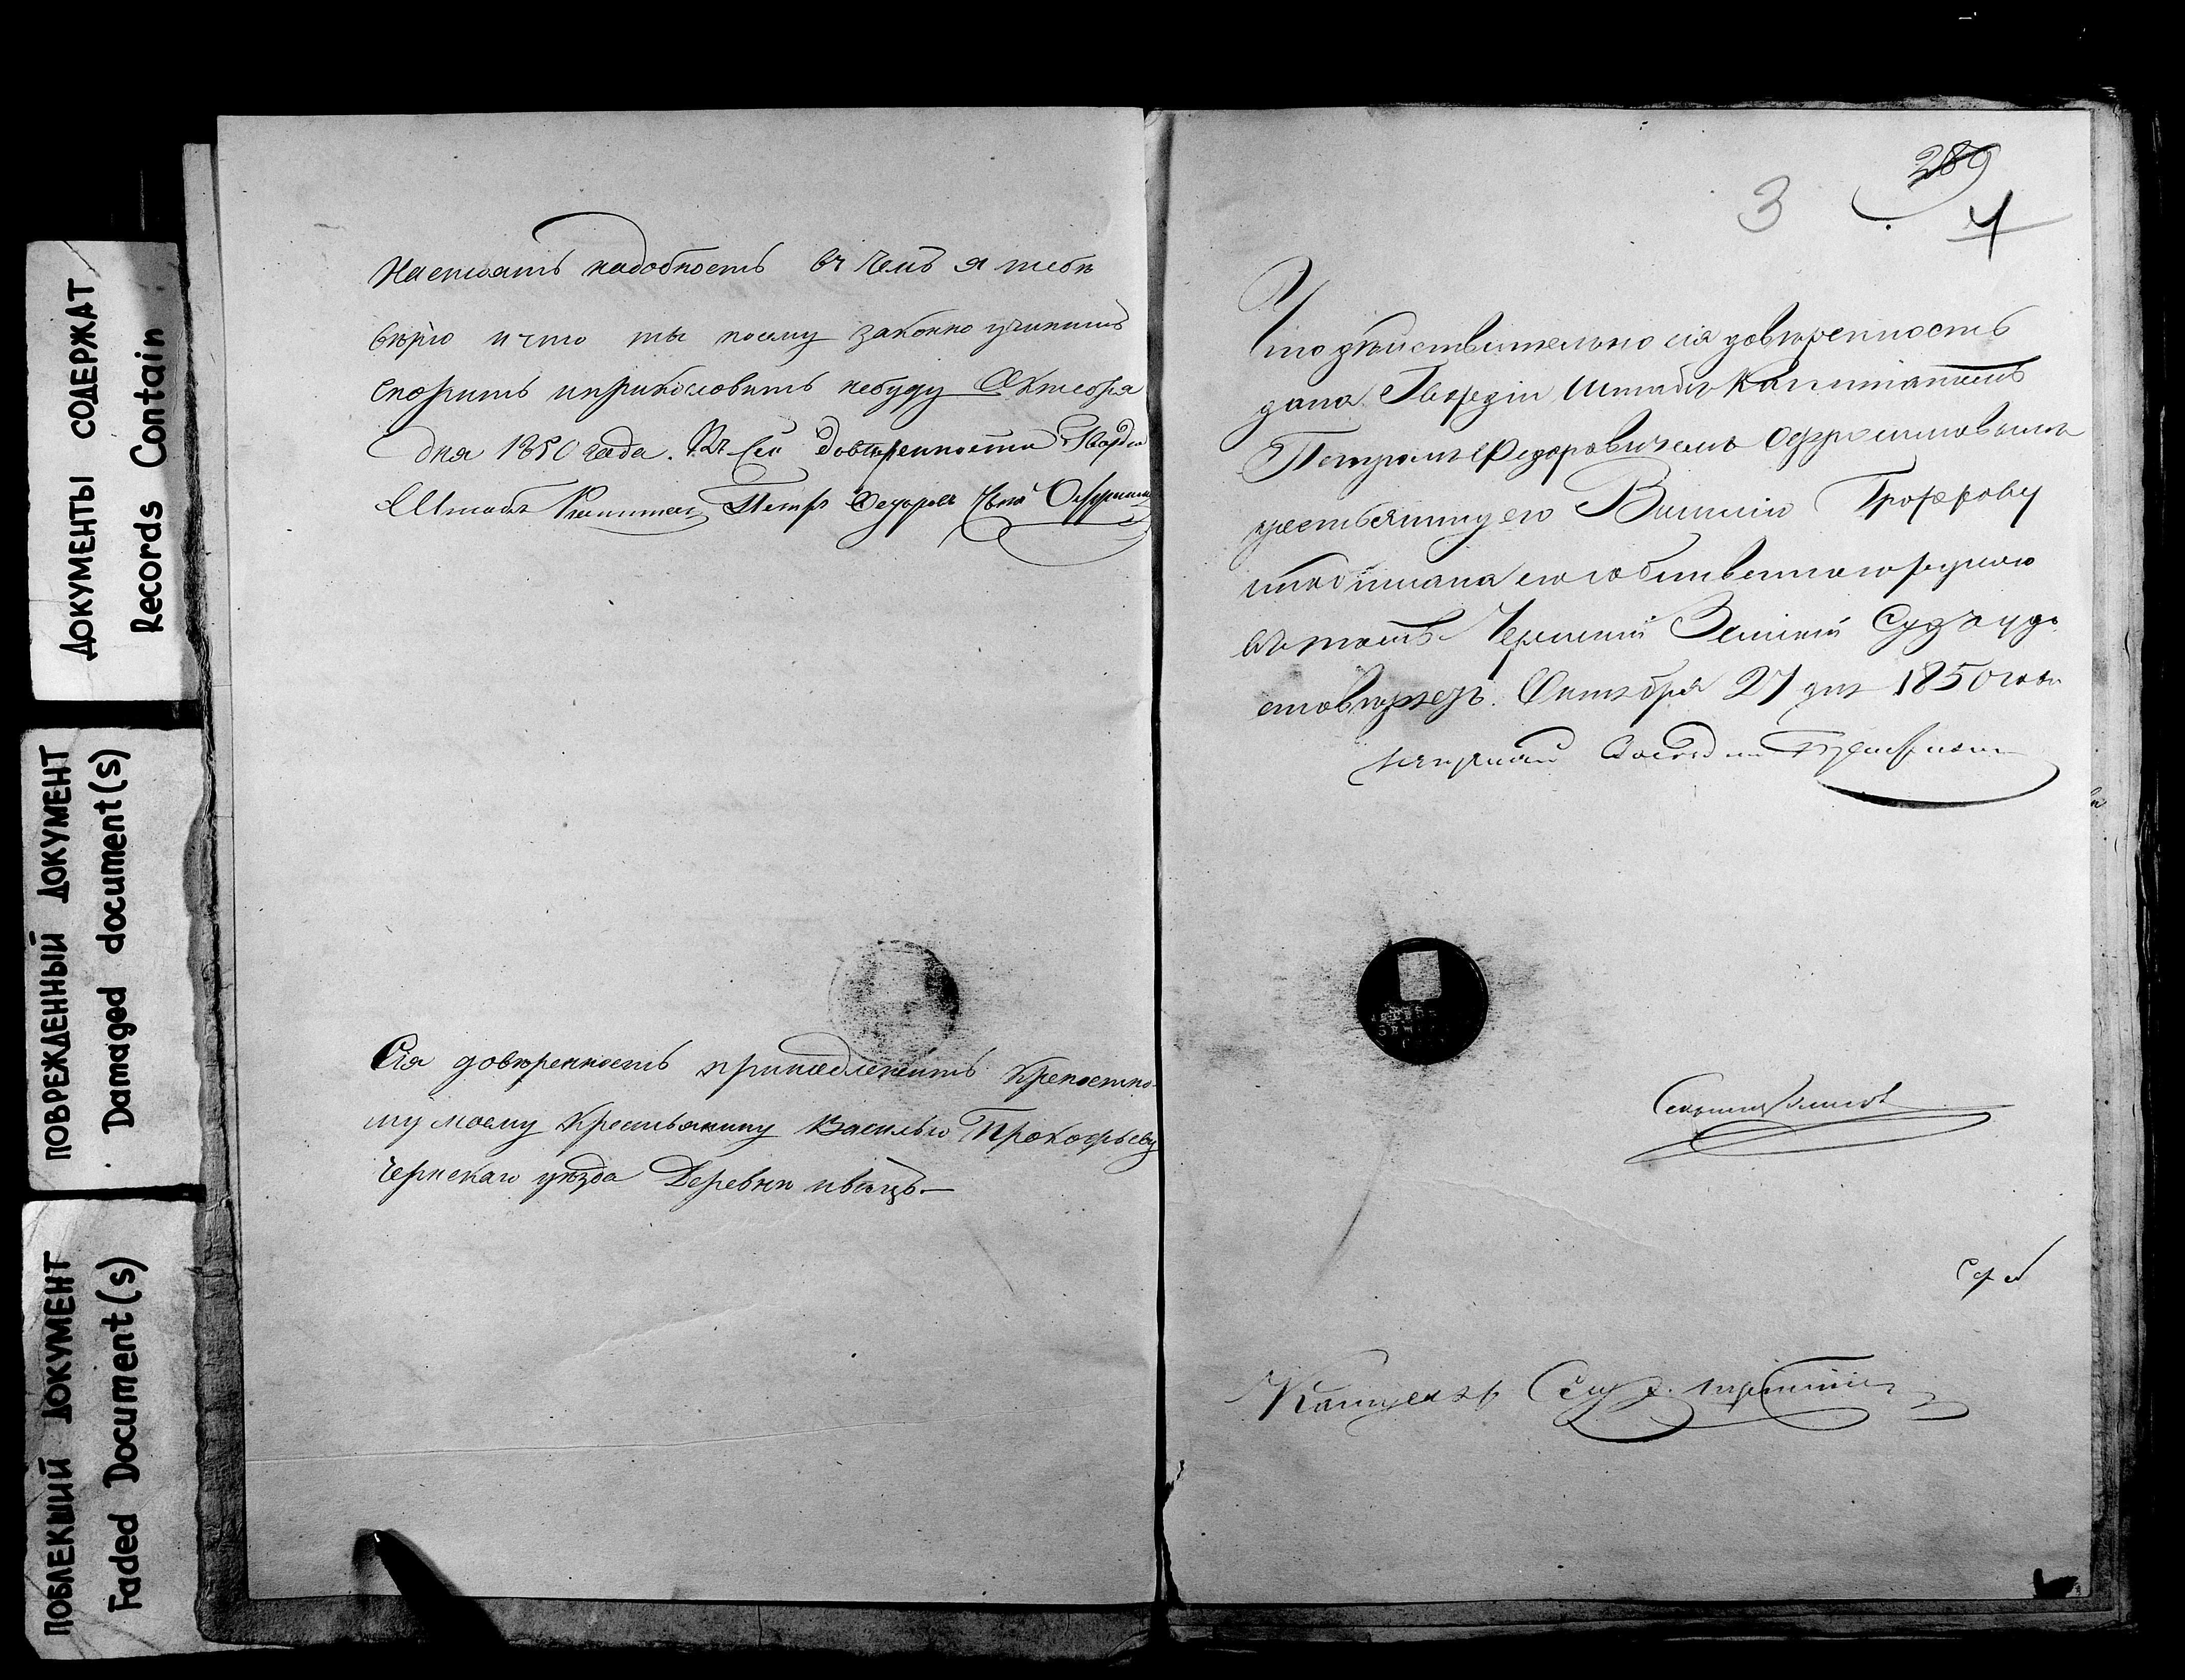 ДОКУМЕНТЫ СОДЕРЖАТ
Records Contain
ПОВРЕЖДЕННЫЙ ДОКУМЕНТ
Damaged document(s)
ПОБЛЕКШИЙ ДОКУМЕНТ
Faded Document(s)
настоять надобность въ чемъ я тебѣ
вѣрю и что ты посему законно учинишь
спорить и прикословить небуду Октебря
дня 1850 года. Къ сей довѣренности Гвардіи
Штабсъ Капитанъ Петръ Федоровъ сынъ
Сія довѣренность принадлежитъ крепостно-
му моему Крестьянину Василью Прокофьеву
Чернскаго уѣзда Деревни
289
3
4
Что дѣйствительно сія довѣренность
дана Гвардіи Штабсъ Капитаномъ
Петромъ Федоровичемъ
крестьянину его Василію Прокофьеву
и подписана его собственною рукою
въ томъ Чернскій Земскій Судъ удо
стовѣряетъ. Октября 27 дня 1850 года